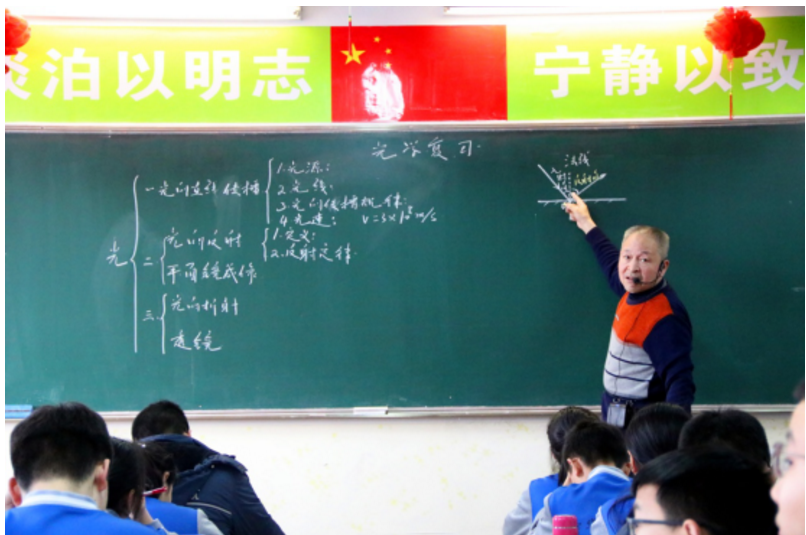 淡泊以明志 宁静以致
光学复习
光
一.光的直线传播
1.光源:
2.光线.
3.光的传播规律:
4.光速: v=3×10⁸m/s
二.
光的反射
1.定义:
2.反射定律.
平面镜成像
三.
光的折射
透镜
法线
入射
反射